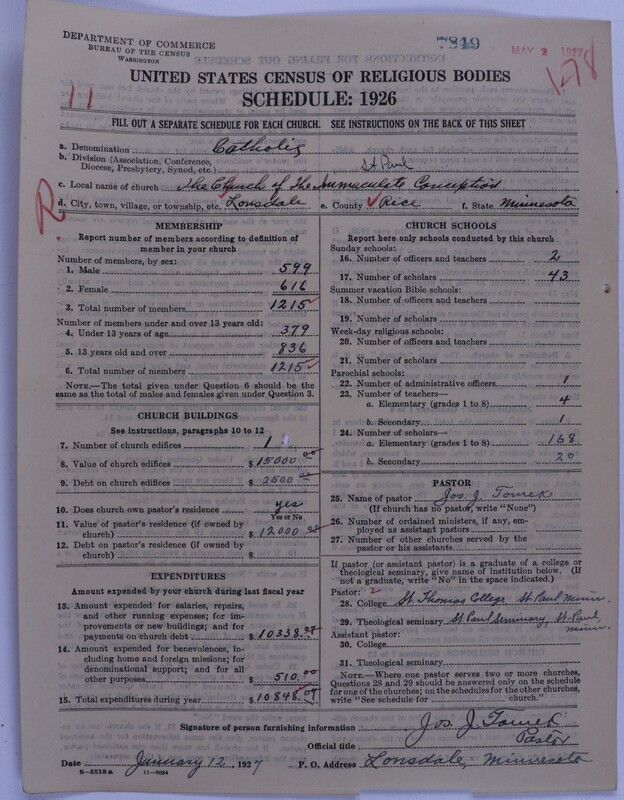 DEPARTMENT OF COMMERCE
BUREAU OF THE CENSUS
WASHINGTON
7849
MAY 2 1927
1-78
11
UNITED STATES CENSUS OF RELIGIOUS BODIES
SCHEDULE: 1926
FILL OUT A SEPARATE SCHEDULE FOR EACH CHURCH. SEE INSTRUCTIONS ON THE BACK OF THIS SHEET
a. Denomination Catholic
b. Division (Association, Conference, Diocese, Presbytery, Synod, etc.) St Paul
c. Local name of church The Church of The Immaculate Conception
d. City, town, village, or township, etc. Lonsdale e. County Rice f. State Minnesota
R
MEMBERSHIP
Report number of members according to definition of member in your church
Number of members, by sex:
1. Male 599
2. Female 616
3. Total number of members 1215
Number of members under and over 13 years old:
4. Under 13 years of age 379
5. 13 years old and over 836
6. Total number of members 1215
NOTE.—The total given under Question 6 should be the same as the total of males and females given under Question 3.
CHURCH BUILDINGS
See instructions, paragraphs 10 to 12
7. Number of church edifices 1
8. Value of church edifices $ 15000 00
9. Debt on church edifices $ 2500 00
10. Does church own pastor's residence yes
Yes or No
11. Value of pastor's residence (if owned by church) $ 12,000 00
12. Debt on pastor's residence (if owned by church) $
EXPENDITURES
Amount expended by your church during last fiscal year
13. Amount expended for salaries, repairs, and other running expenses; for improvements or new buildings; and for payments on church debt $ 10338.07
14. Amount expended for benevolences, including home and foreign missions; for denominational support; and for all other purposes $ 510.00
15. Total expenditures during year $ 10848.07
CHURCH SCHOOLS
Report here only schools conducted by this church
Sunday schools:
16. Number of officers and teachers 2
17. Number of scholars 43
Summer vacation Bible schools:
18. Number of officers and teachers
19. Number of scholars
Week-day religious schools:
20. Number of officers and teachers
21. Number of scholars
Parochial schools:
22. Number of administrative officers 1
23. Number of teachers—
a. Elementary (grades 1 to 8) 4
b. Secondary 1
24. Number of scholars—
a. Elementary (grades 1 to 8) 168
b. Secondary 20
PASTOR
25. Name of pastor Jos. J. Tomek
(If church has no pastor, write "None")
26. Number of ordained ministers, if any, employed as assistant pastors
27. Number of other churches served by the pastor or his assistants
If pastor (or assistant pastor) is a graduate of a college or theological seminary, give name of institution below. (If not a graduate, write "No" in the space indicated.)
Pastor: 2
28. College St. Thomas College St. Paul Minn.
29. Theological seminary St Paul Seminary, St. Paul, Minn.
Assistant pastor:
30. College
31. Theological seminary
NOTE.—Where one pastor serves two or more churches, Questions 28 and 29 should be answered only on the schedule for one of the churches; on the schedules for the other churches, write "See schedule for church."
Signature of person furnishing information Jos. J. Tomek
Official title Pastor
Date January 12, 1927 P. O. Address Lonsdale, Minnesota
8—5518a 11—9064